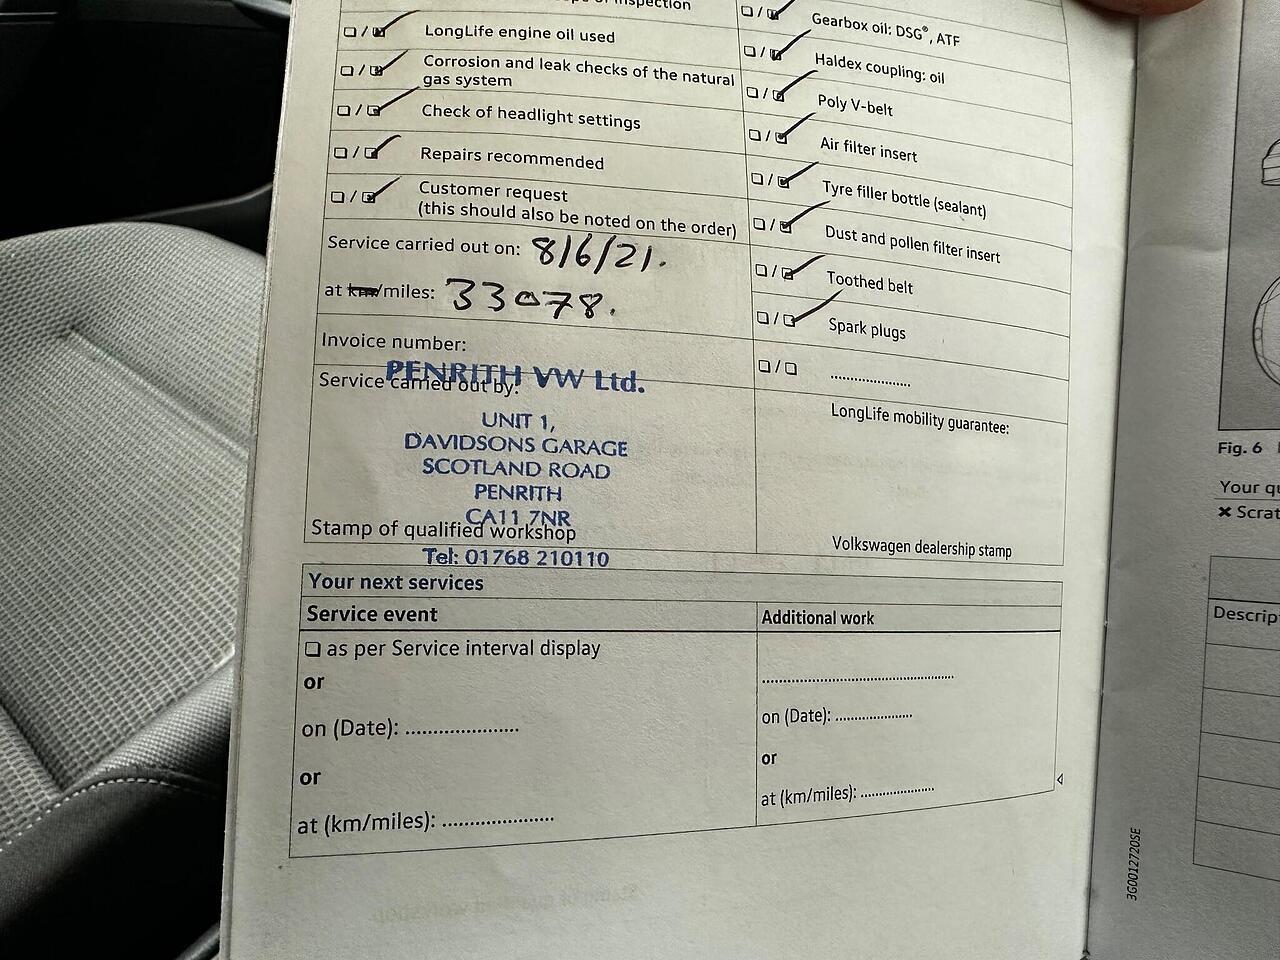 of inspection
LongLife engine oil used
Corrosion and leak checks of the natural
gas system
Check of headlight settings
Repairs recommended
Customer request
(this should also be noted on the order)
Service carried out on: 8/6/21.
at km/miles: 33078.
Invoice number:
PENRITH VW Ltd.
Service carried out by:
UNIT 1,
DAVIDSONS GARAGE
SCOTLAND ROAD
PENRITH
CA11 7NR
Stamp of qualified workshop
Tel: 01768 210110
Gearbox oil: DSG®, ATF
Haldex coupling: oil
Poly V-belt
Air filter insert
Tyre filler bottle (sealant)
Dust and pollen filter insert
Toothed belt
Spark plugs
......................
LongLife mobility guarantee:
Volkswagen dealership stamp
Your next services
Service event
Additional work
as per Service interval display
or
on (Date): ......................
or
at (km/miles): ......................
.....................................................
on (Date): ......................
or
at (km/miles): .....................
3G0012720SE
Fig. 6
Your qu
✖ Scrat
Descrip